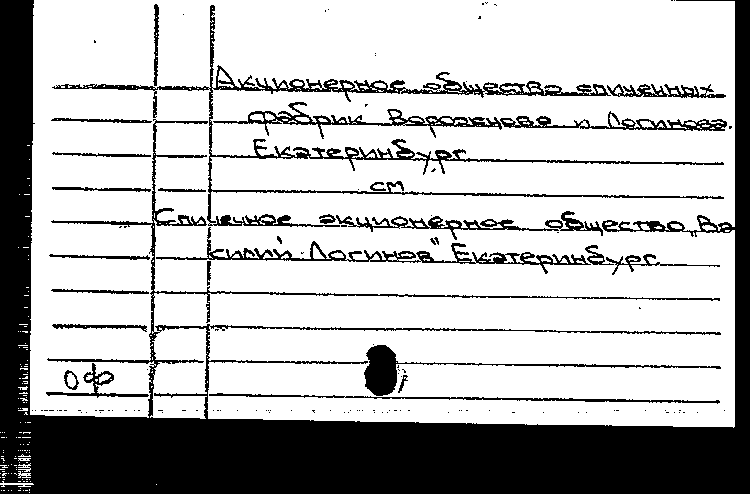 Акционерное общество спичечных
фабрик Ворожцова и Логинова.
Екатеринбург.
см
Спичечное акционерное общество „Ва
силий Логинов" Екатеринбург.
ОФ